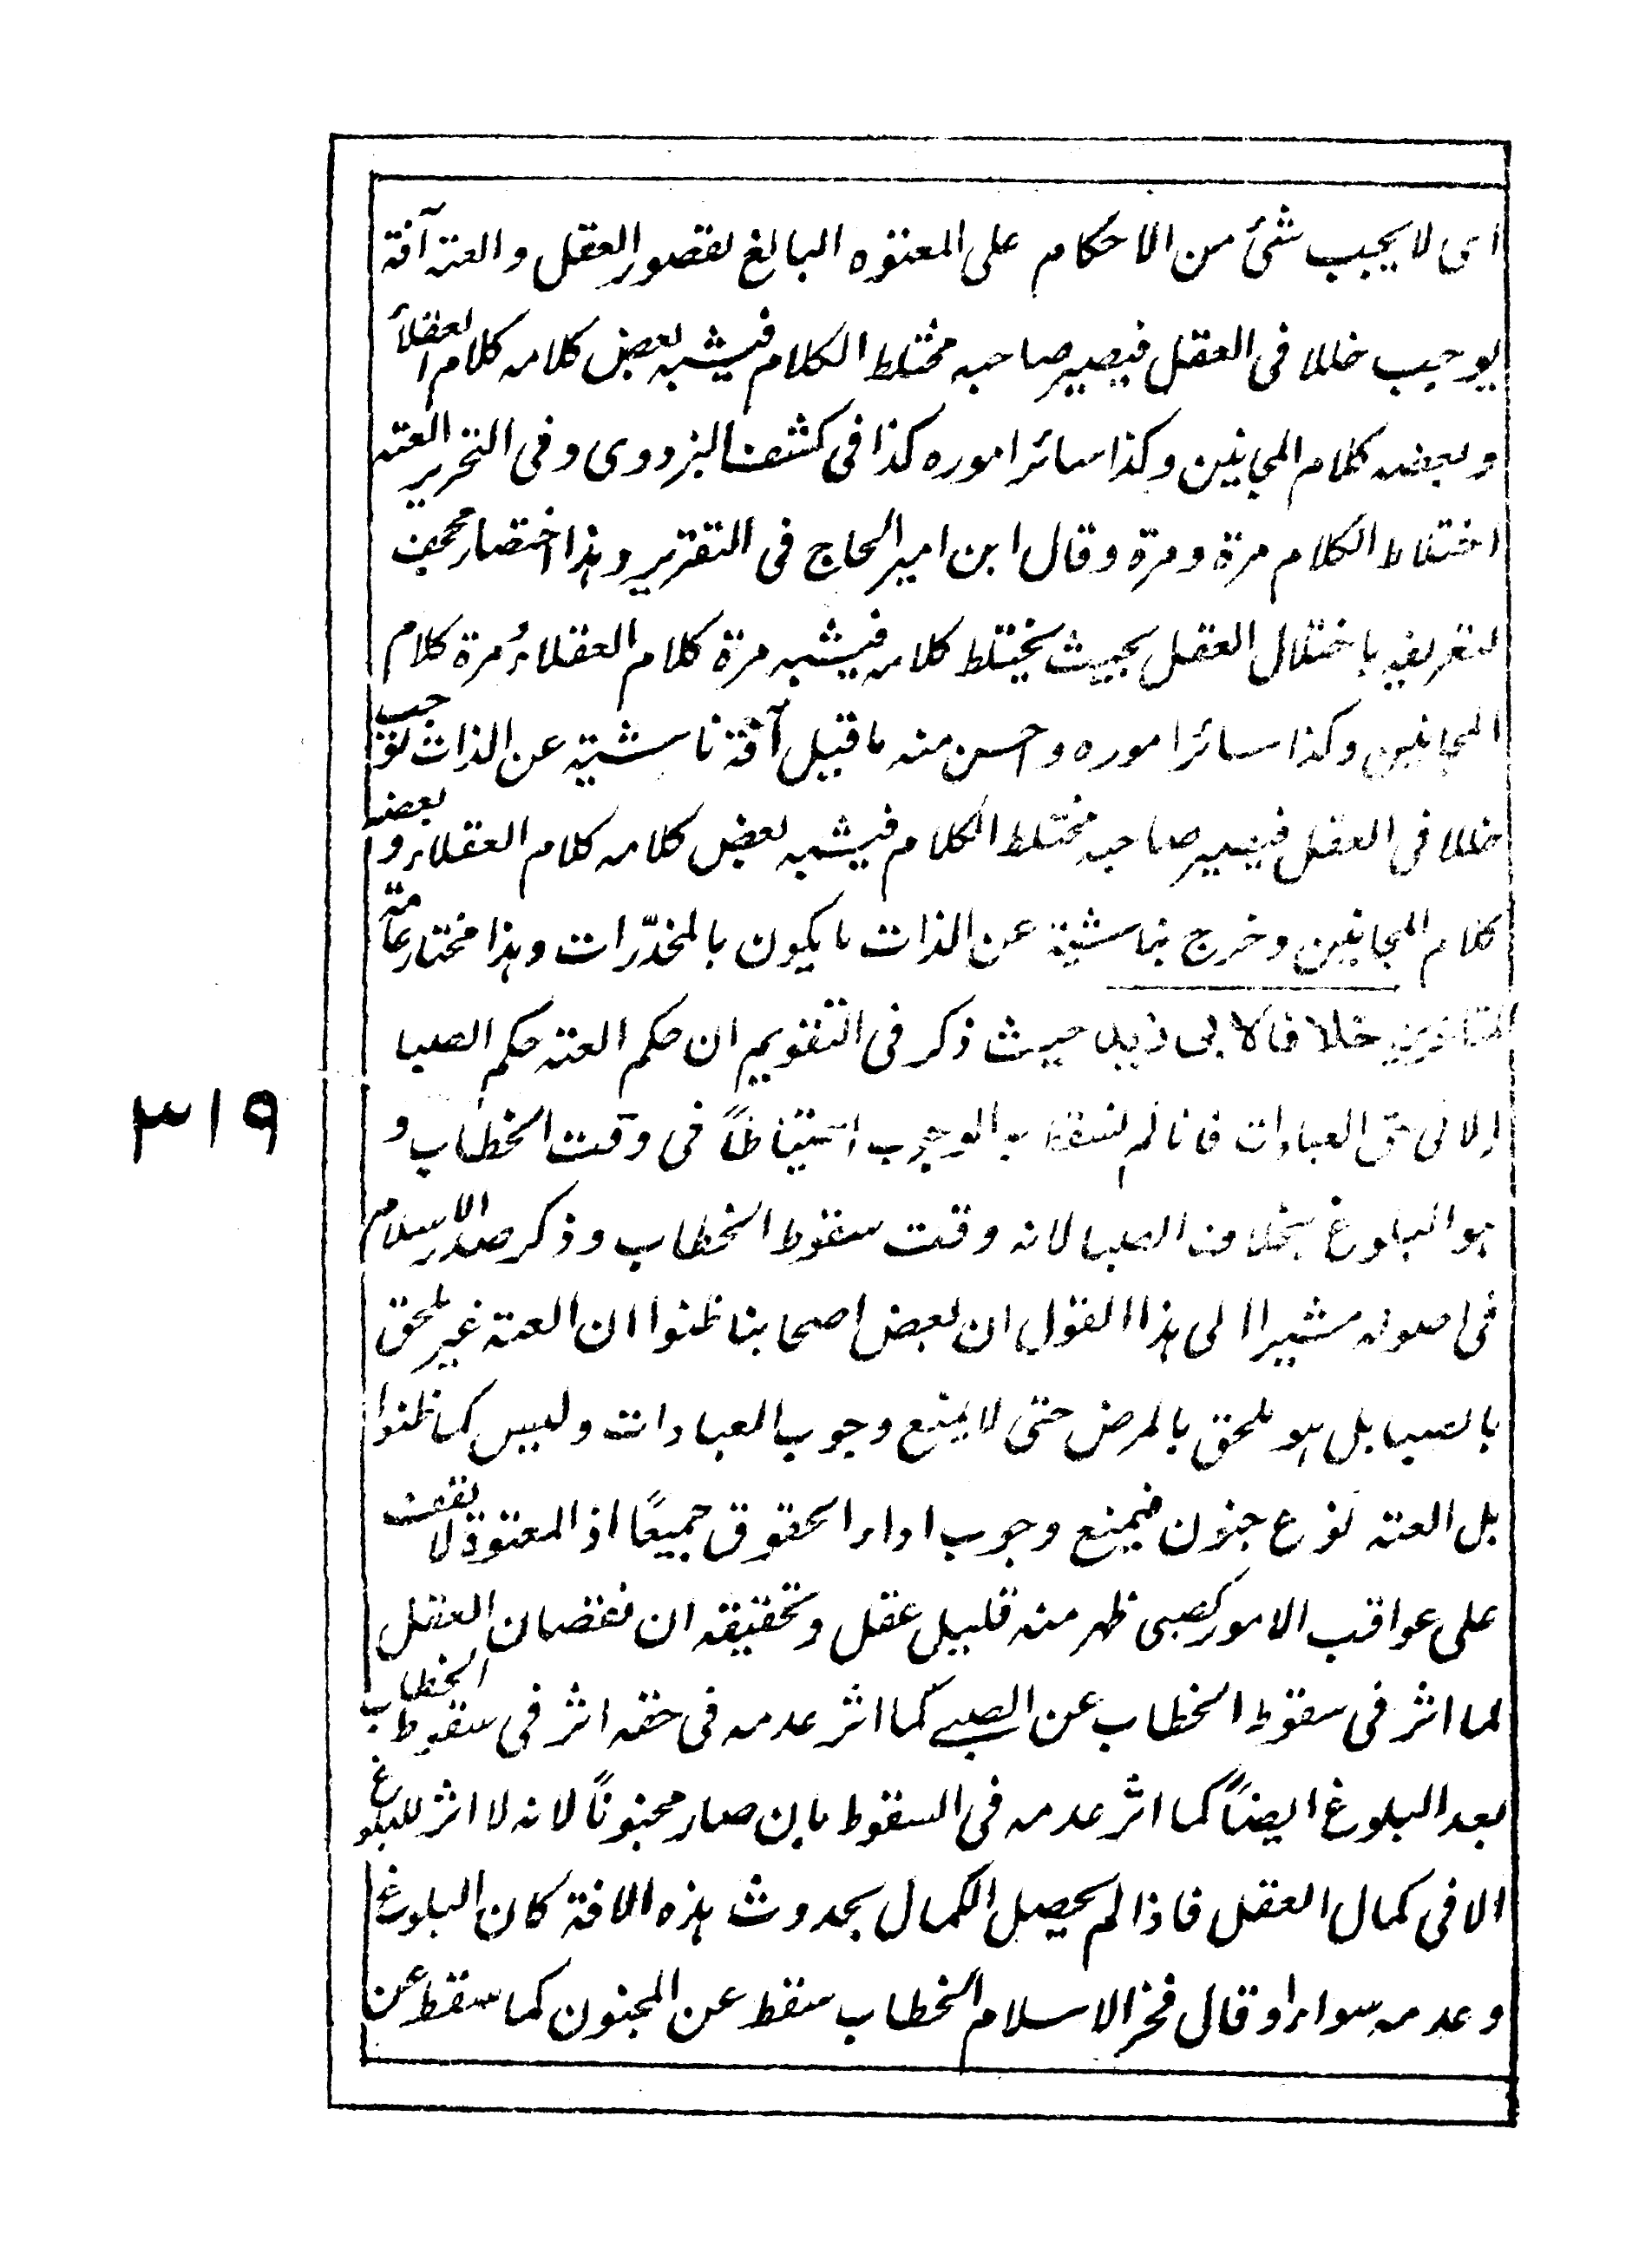 اى لا يجب شئ من الاحكام على المعتوه البالغ لقصور العقل و العته آفة
يوجب خللا فى العقل فيصير صاحبه مختلط الكلام فيشبه بعض كلامه كلام العقلأ
وبعضه كلام المجانين وكذا سائر اموره كذا فى كشف البزدوى و فى التحرير العته
اختلاط الكلام مرة ومرة وقال ابن امير الحاج فى التقرير وهذا اختصار مجحف
لتعريفه باختلال العقل بحيث يختلط كلامه فيشبه مرة كلام العقلاء ومرة كلام
المجانين وكذا سائر اموره واحسن منه ما قيل آفة ناشية عن الذات توجب
خللا فى العقل فيصير صاحبه مختلط الكلام فيشبه بعض كلامه كلام العقلاء وبعضه
كلام المجانين وخرج بناشية عن الذات ما يكون بالمخدّرات وهذا مختار عامة
المتأخرين خلافا لابى زيد حيث ذكر فى التقويم ان حكم العته حكم الصبا
الا فى حق العبادات فانا لم نسقط به الوجوب احتياطاً فى وقت الخطاب و
هو البلوغ بخلاف الصبا لانه وقت سقوط الخطاب وذكر صدر الاسلام
فى اصوله مشيرا الى هذا القول ان بعض اصحابنا ظنوا ان العته غير ملحق
بالصبا بل هو ملحق بالمرض حتى لا يمنع وجوب العبادات وليس كما ظنوا
بل العته نوع جنون فيمنع وجوب اداء الحقوق جميعًا اذ المعتوه لا يقف
على عواقب الامور كصبى ظهر منه قليل عقل وتحقيقه ان نقصان العقل
لما اثر فى سقوط الخطاب عن الصبے كما اثر عدمه فى حقه اثر فى سقوط الخطاب
بعد البلوغ ايضاً كما اثر عدمه فى السقوط بان صار مجنوناً لانه لا اثر للبلوغ
الا فى كمال العقل فاذا لم يحصل الكمال بحدوث هذه الافة كان البلوغ
وعدمه سواء وقال فخر الاسلام الخطاب سقط عن المجنون كما سقط عن
٣١٩